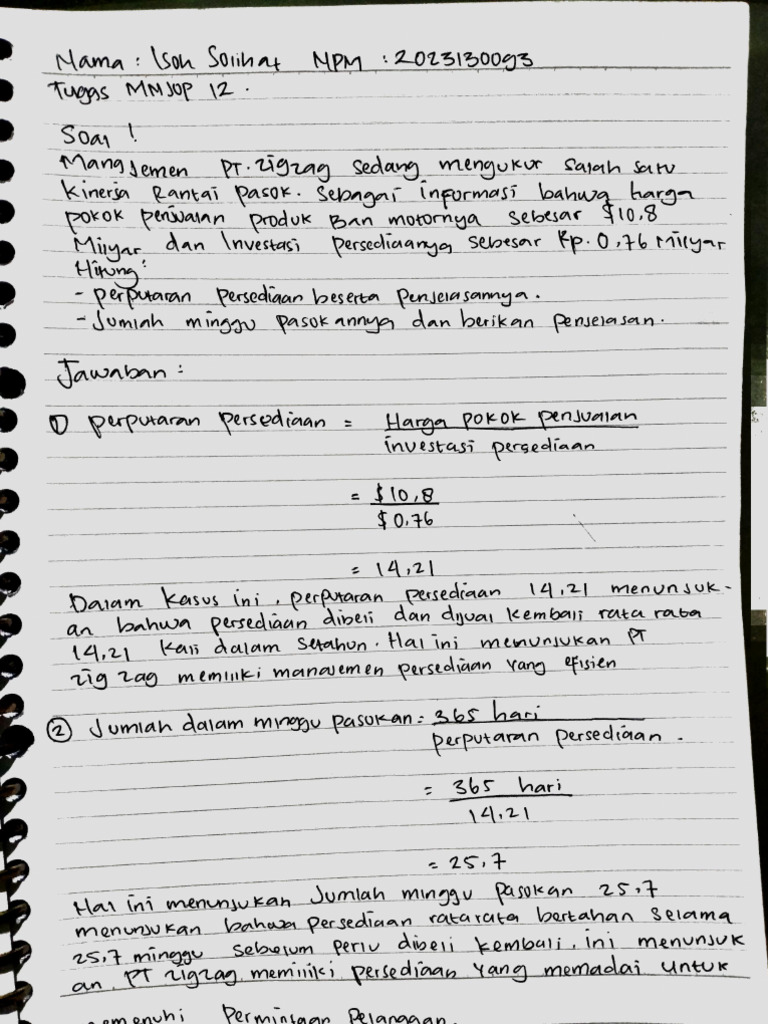 Nama : Isoh Solihat NPM : 2023130093
Tugas MMJOP 12.
Soal !
Manajemen PT. zigzag sedang mengukur salah satu
kinerja Rantai pasok. Sebagai informasi bahwa harga
pokok penjualan produk Ban motornya sebesar $10,8
Milyar dan Investasi persediaanya sebesar Rp. 0,76 Milyar
Hitung:
- perputaran persediaan beserta penjelasannya.
- Jumlah minggu pasokannya dan berikan penjelasan.
Jawaban :
1) perputaran persediaan = Harga pokok penjualan
investasi persediaan
= $10,8
$0,76
= 14,21
Dalam kasus ini, perputaran persediaan 14,21 menunjuk-
an bahwa persediaan dibeli dan dijual kembali rata rata
14,21 kali dalam setahun. Hal ini menunjukan PT
zig zag memiliki manajemen persediaan yang efisien
2 Jumlah dalam minggu pasokan = 365 hari
perputaran persediaan.
= 365 hari
14,21
= 25,7
Hal ini menunjukan Jumlah minggu pasokan 25,7
menunjukan bahwa persediaan rata rata bertahan selama
25,7 minggu sebelum perlu dibeli kembali, ini menunjuk
an, PT zigzag memiliki persediaan yang memadai untuk
Permintaan Pelanggan.